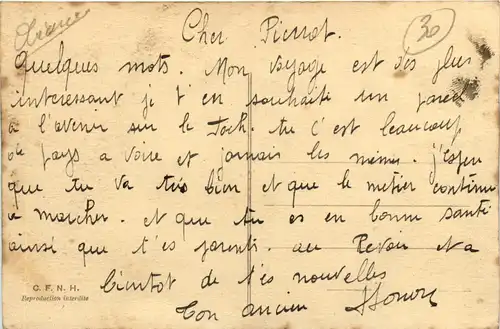 30
Cher Pierrot.
Quelques mots. Mon voyage est des plus
interessant je t'en souhaite un pareil
a l'avenir sur le Foch. tu c'est beaucoup
de pays a voire et jamais les mêmes. j'espere
que tu va très bien et que le metier continue
a marcher. et que tu es en bonne santé
ainsi que t'es parents. au Revoir et a
bientot de t'es nouvelles
Ton ancien
C.F.N.H.
Reproduction interdite